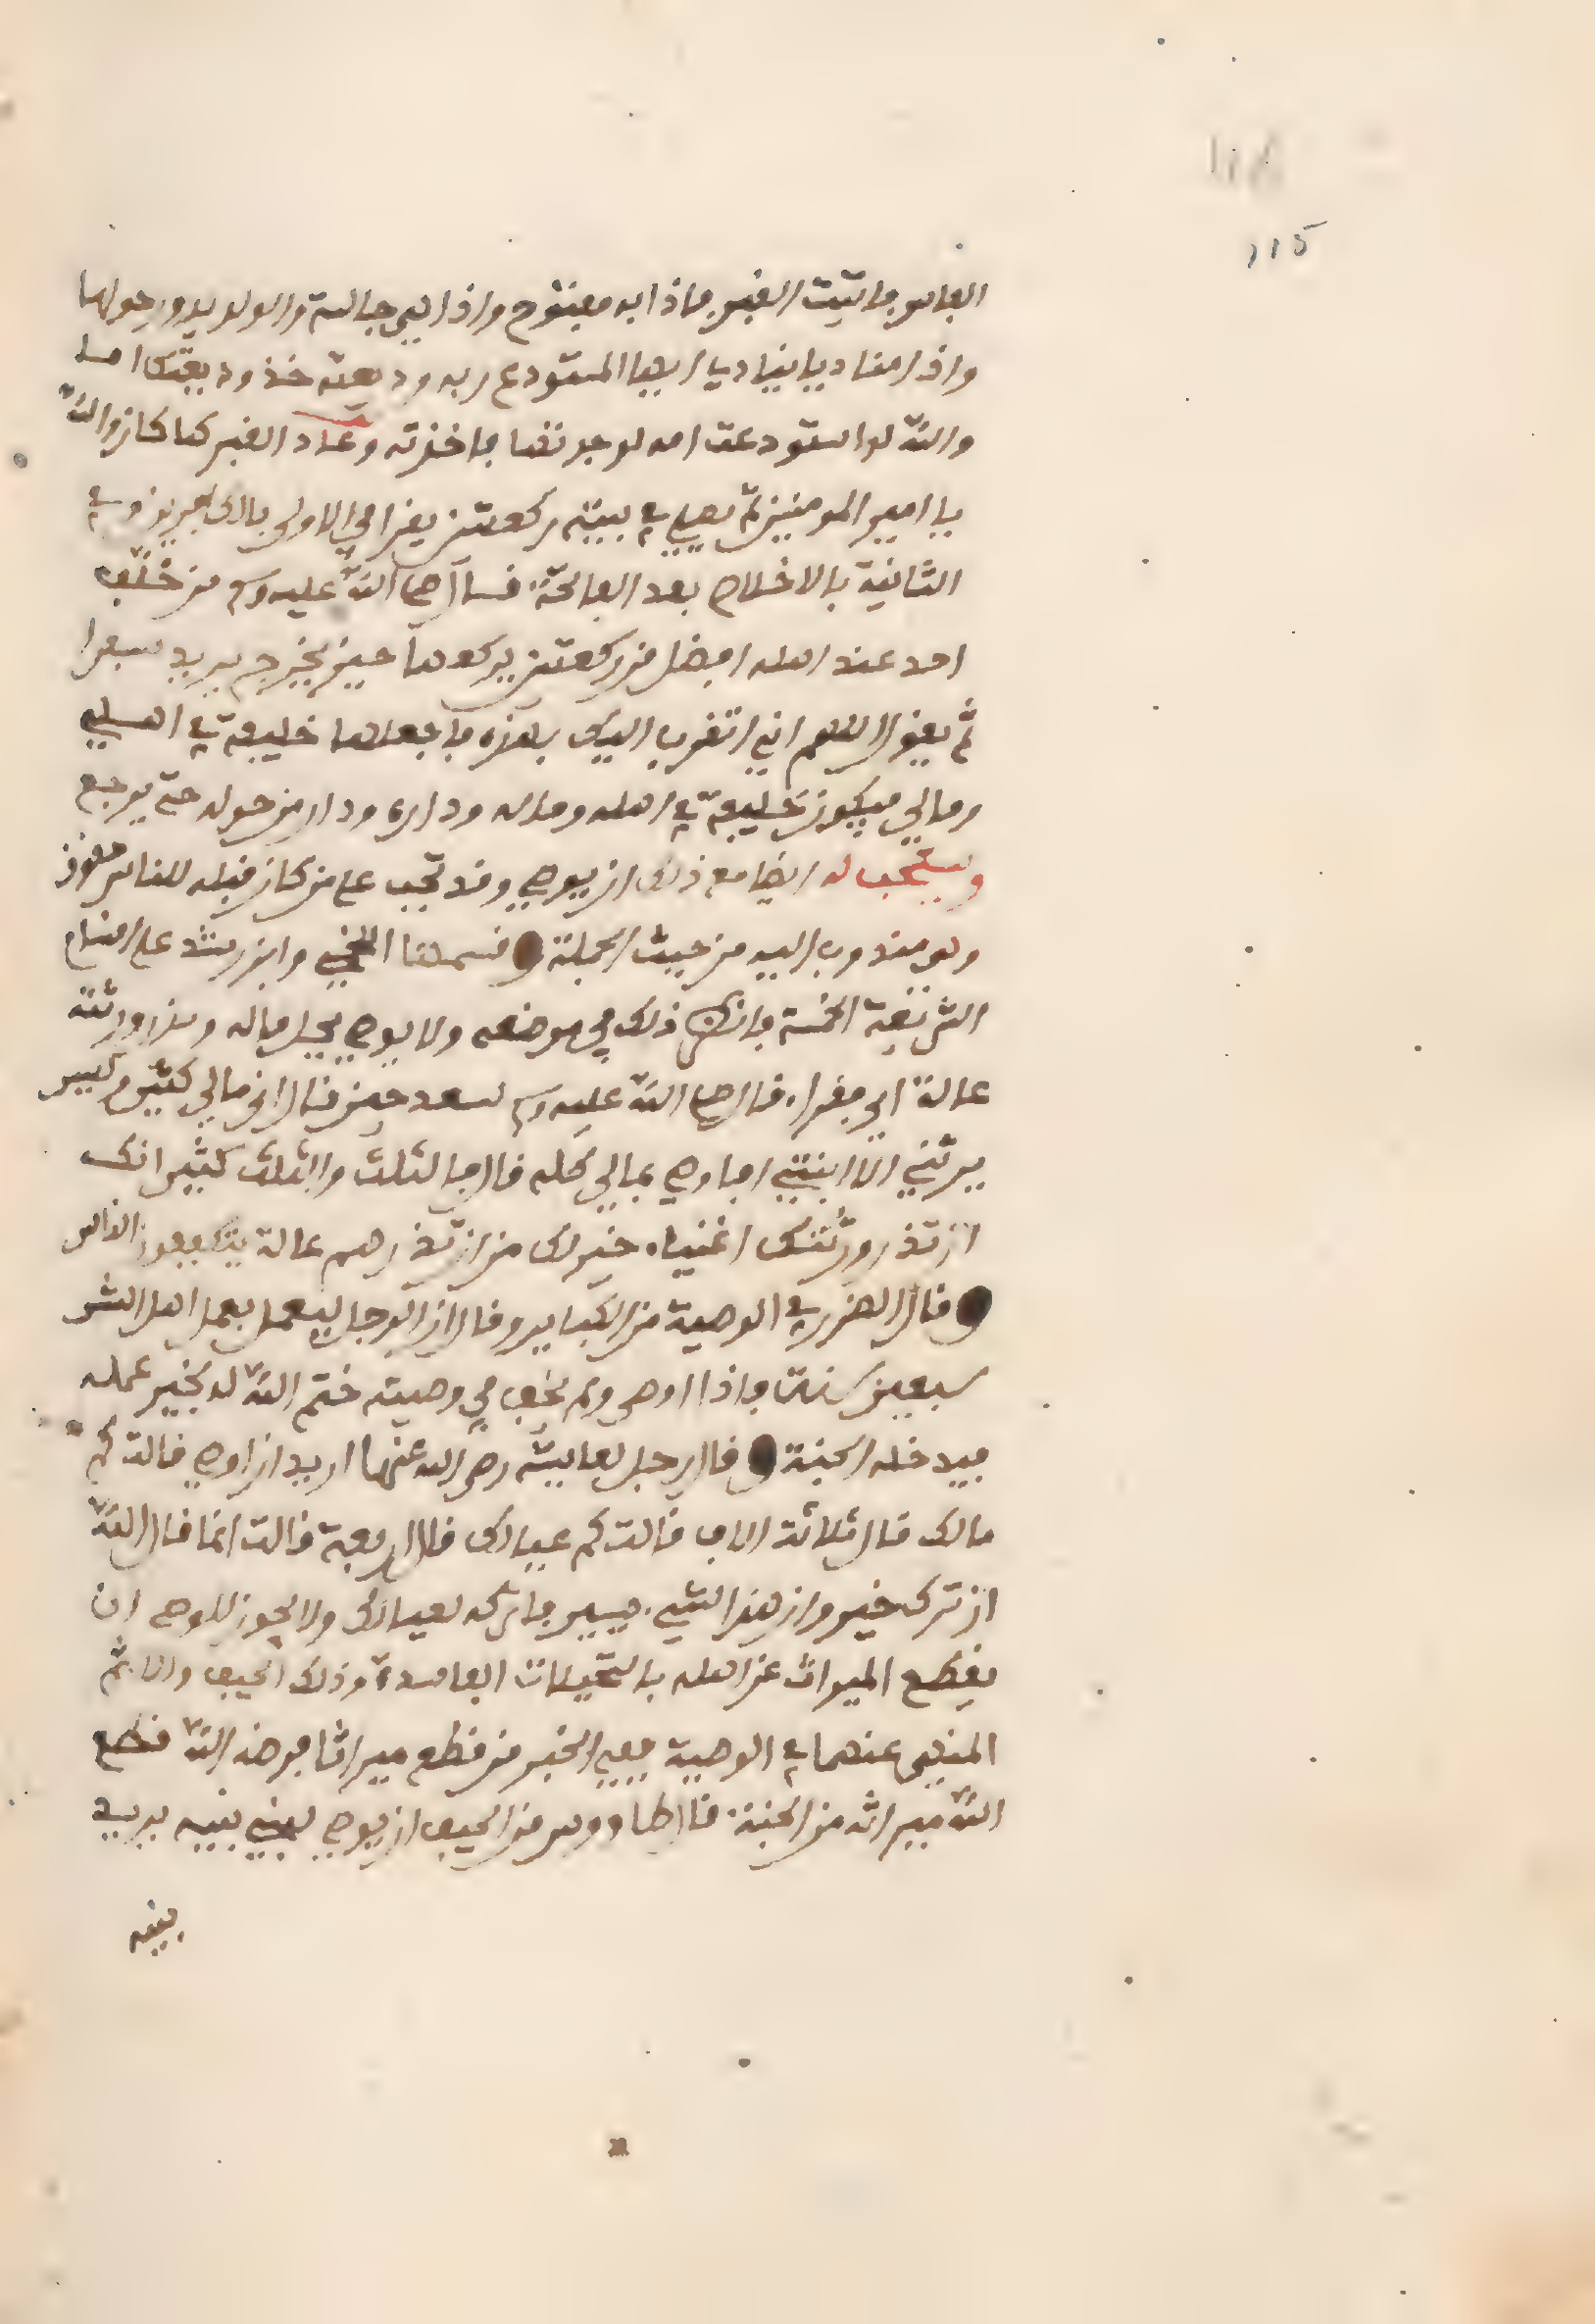 115
الفاس فاتيت القبر فاذا به مفتوح واذا هي جالسة والولد يدور حولها
واذا مناديا ينادي ايها المستودع ربه وديعته خذ وديعتك اما
والله لو استودعت امه لوجدتها فاخذته وعاد القبر كما كان والله
يا امير المومنين ثم يصلي في بيته ركعتين يقرا في الاولى بالكافرون وفي
الثانية بالاخلاص بعد الفاتحة قال صلى الله عليه وسلم من خلف
احد عند اهله افضل من ركعتين يركعهما حين يخرج يريد سفرا
ثم يقول اللهم اني اتقرب اليك بهذه فاجعلهما خليفة في اهلي
ومالي فيكون خليفة في اهله وماله وداره ودار من حوله حتى يرجع
ويستحب له ايضا مع ذلك ان يوصي وقد تجب على من كان قبله للناس حقوق
وهو مندوب اليه من حيث الجملة وقسمها اللخمي وابن رشد على اقسام
الشريعة الخمسة فانظر ذلك في موضعه ولا يوصي بجل ماله ويذر ورثته
عالة اي فقراء قال صلى الله عليه وسلم لسعد حين قال ان مالي كثير وليس
يرثني الا ابنتي افاوصي بمالي كله قال فالثلث والثلث كثير انك
ان تذر ورثتك اغنياء خير لك من ان تذرهم عالة يتكففون الناس
وقال الضرر في الوصية من الكباير وقال ان الرجل ليعمل بعمل اهل الشر
سبعين سنة فاذا اوصى ولم يخف في وصيته ختم الله له بخير عمله
فيدخله الجنة وقال رجل لعايشة رضي الله عنها اريد ان اوصي قالت كم
مالك قال ثلاثة الاف قالت كم عيالك قال اربعة قالت انما قال الله
ان ترك خيرا وان هذا الشيء يسير فاتركه لعيالك ولا يجوز للموصي ان
يقطع الميراث عن اهله بالتحيلات الفاسدة وذلك الحيف والاثم
المنهي عنهما في الوصية ففي الخبر من قطع ميراثا فرضه الله قطع
الله ميراثه من الجنة قال طاووس من الحيف ان يوصي لبني بنيه يريد
بنيه